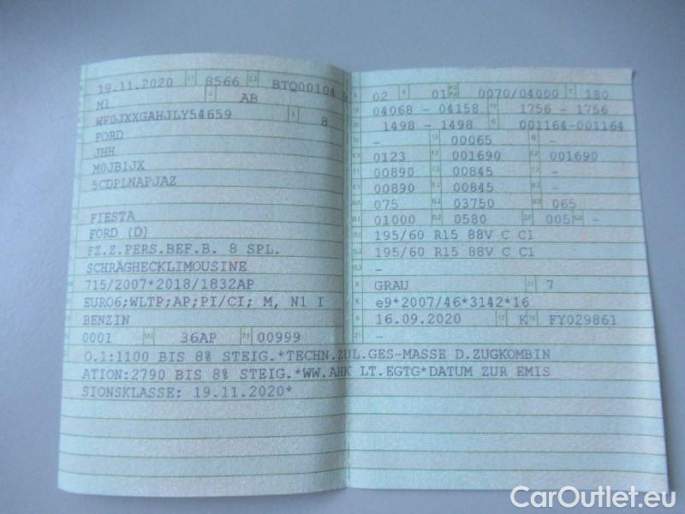 19.11.2020 8566 BTQ00104
M1 AB
WF0JXXGAHJLY54659 8
FORD
JHH
M0JBIJX
5CDPLNAPJAZ
FIESTA
FORD (D)
FZ.Z.PERS.BEF.B. 8 SPL.
SCHRÄGHECKLIMOUSINE
715/2007*2018/1832AP
EURO6;WLTP;AP;PI/CI; M, N1 I
BENZIN
0001 36AP 00999
02 01 0070/04000 180
04068 - 04158 1756 - 1756
1498 - 1498 001164-001164
- 00065 -
0123 001690 001690
00890 00845 -
00890 00845 -
075 03750 065
01000 0580 005 -
195/60 R15 88V C C1
195/60 R15 88V C C1
-
GRAU 7
e9*2007/46*3142*16
16.09.2020 K FY029861
O.1:1100 BIS 8% STEIG.*TECHN.ZUL.GES-MASSE D.ZUGKOMBIN
ATION:2790 BIS 8% STEIG.*WW.AHK LT.EGTG*DATUM ZUR EMIS
SIONSKLASSE: 19.11.2020*
CarOutlet.eu